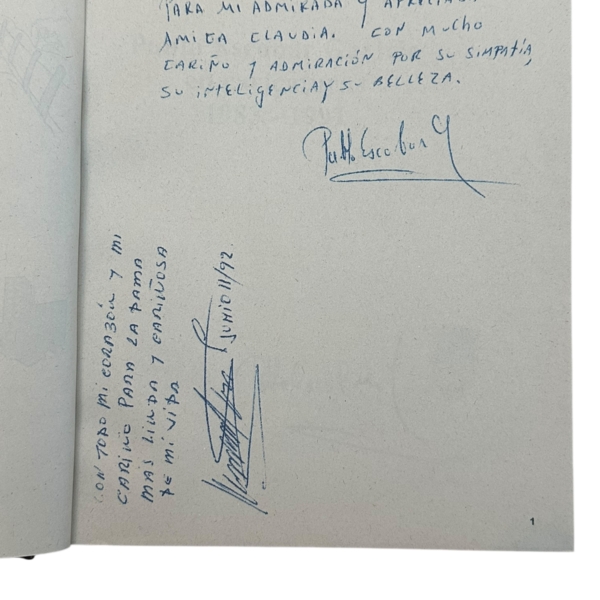 PARA MI ADMIRADA Y
AMIGA CLAUDIA. CON MUCHO
CARIÑO Y ADMIRACIÓN POR SU SIMPATÍA,
SU INTELIGENCIA Y SU BELLEZA.
Pablo Escobar G
CON TODO MI CORAZÓN Y MI
CARIÑO PARA LA DAMA
MAS LINDA Y CARIÑOSA
DE MI VIDA
JUNIO 11/92.
1